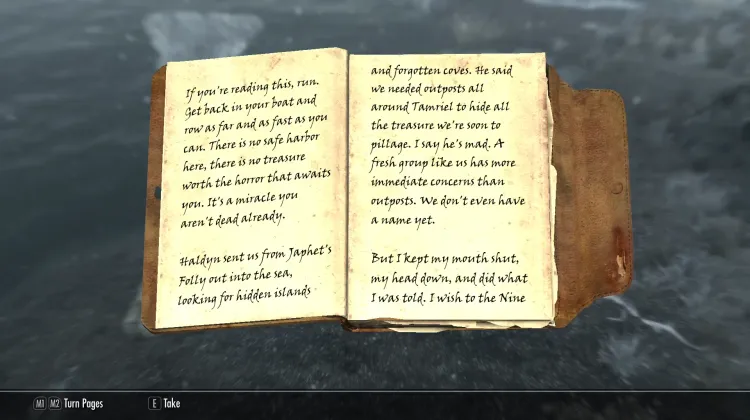 If you're reading this, run.
Get back in your boat and
row as far and as fast as you
can. There is no safe harbor
here, there is no treasure
worth the horror that awaits
you. It's a miracle you
aren't dead already.
Haldyn sent us from Japhet's
Folly out into the sea,
looking for hidden islands
and forgotten coves. He said
we needed outposts all
around Tamriel to hide all
the treasure we're soon to
pillage. I say he's mad. A
fresh group like us has more
immediate concerns than
outposts. We don't even have
a name yet.
But I kept my mouth shut,
my head down, and did what
I was told. I wish to the Nine
M1 M2 Turn Pages E Take